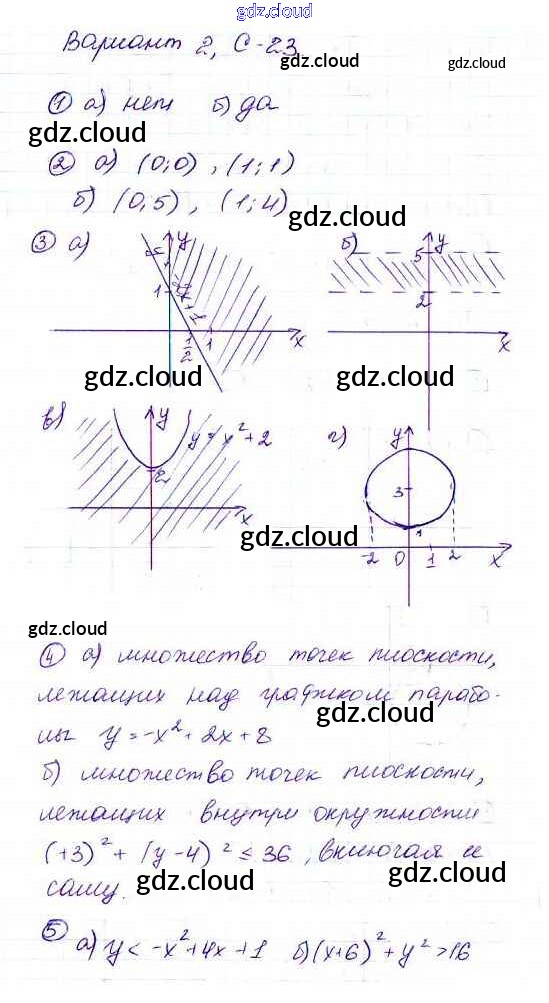 gdz.cloud
Вариант 2, С-23
gdz.cloud gdz.cloud
① а) нет б) да
gdz.cloud
② а) (0;0), (1;1)
б) (0;5), (1;4)
gdz.cloud
③ а) y б) y
5
1 2
1/2 1 x x
gdz.cloud gdz.cloud
в) y y = x² + 2 г) y
2 3
x 1
gdz.cloud
-2 0 1 2 x
gdz.cloud
④ а) множество точек плоскости,
лежащих над графиком парабо-
лы y = -x² + 2x + 8
gdz.cloud
б) множество точек плоскости,
лежащих внутри окружности
gdz.cloud
(+3)² + (y - 4)² ≤ 36, включая и
саму.
gdz.cloud gdz.cloud
⑤ а) y < -x² + 4x + 1 б) (x+6)² + y² > 16